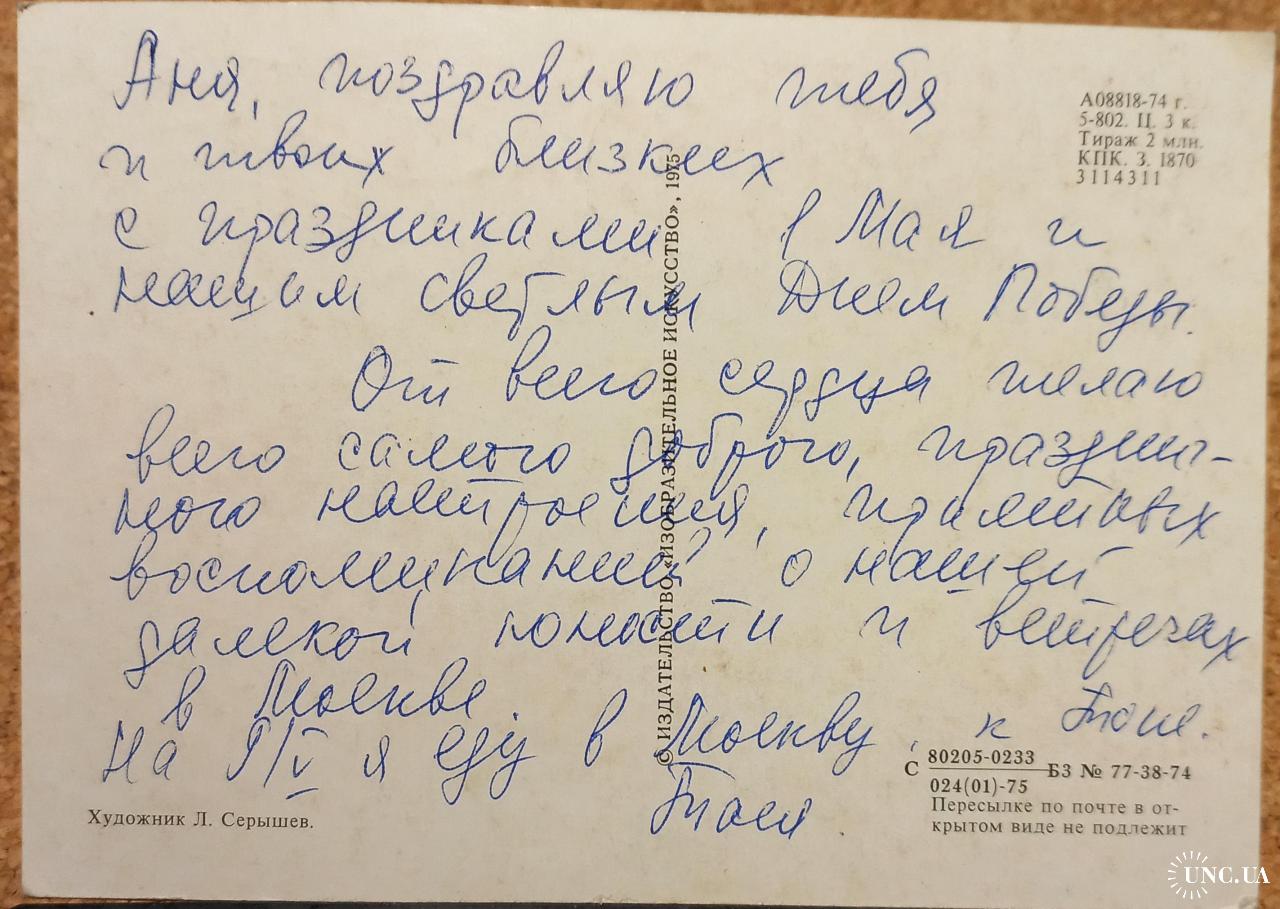 Аня, поздравляю тебя
и твоих близких
с праздниками 1 Мая и
нашим светлым Днем Победы.
От всего сердца желаю
всего самого доброго, празднич-
ного настроения, приятных
воспоминаний о нашей
далекой юности и встречах
в Москве.
На я еду в Москву, к Тоне.
Тоня.
А08818-74 г.
5-802. Ц. 3 к.
Тираж 2 млн.
КПК. З. 1870
3114311
© ИЗДАТЕЛЬСТВО «ИЗОБРАЗИТЕЛЬНОЕ ИСКУССТВО», 1975
С 80205-0233 БЗ № 77-38-74
024(01)-75
Пересылке по почте в от-
крытом виде не подлежит
Художник Л. Серышев.
UNC.UA